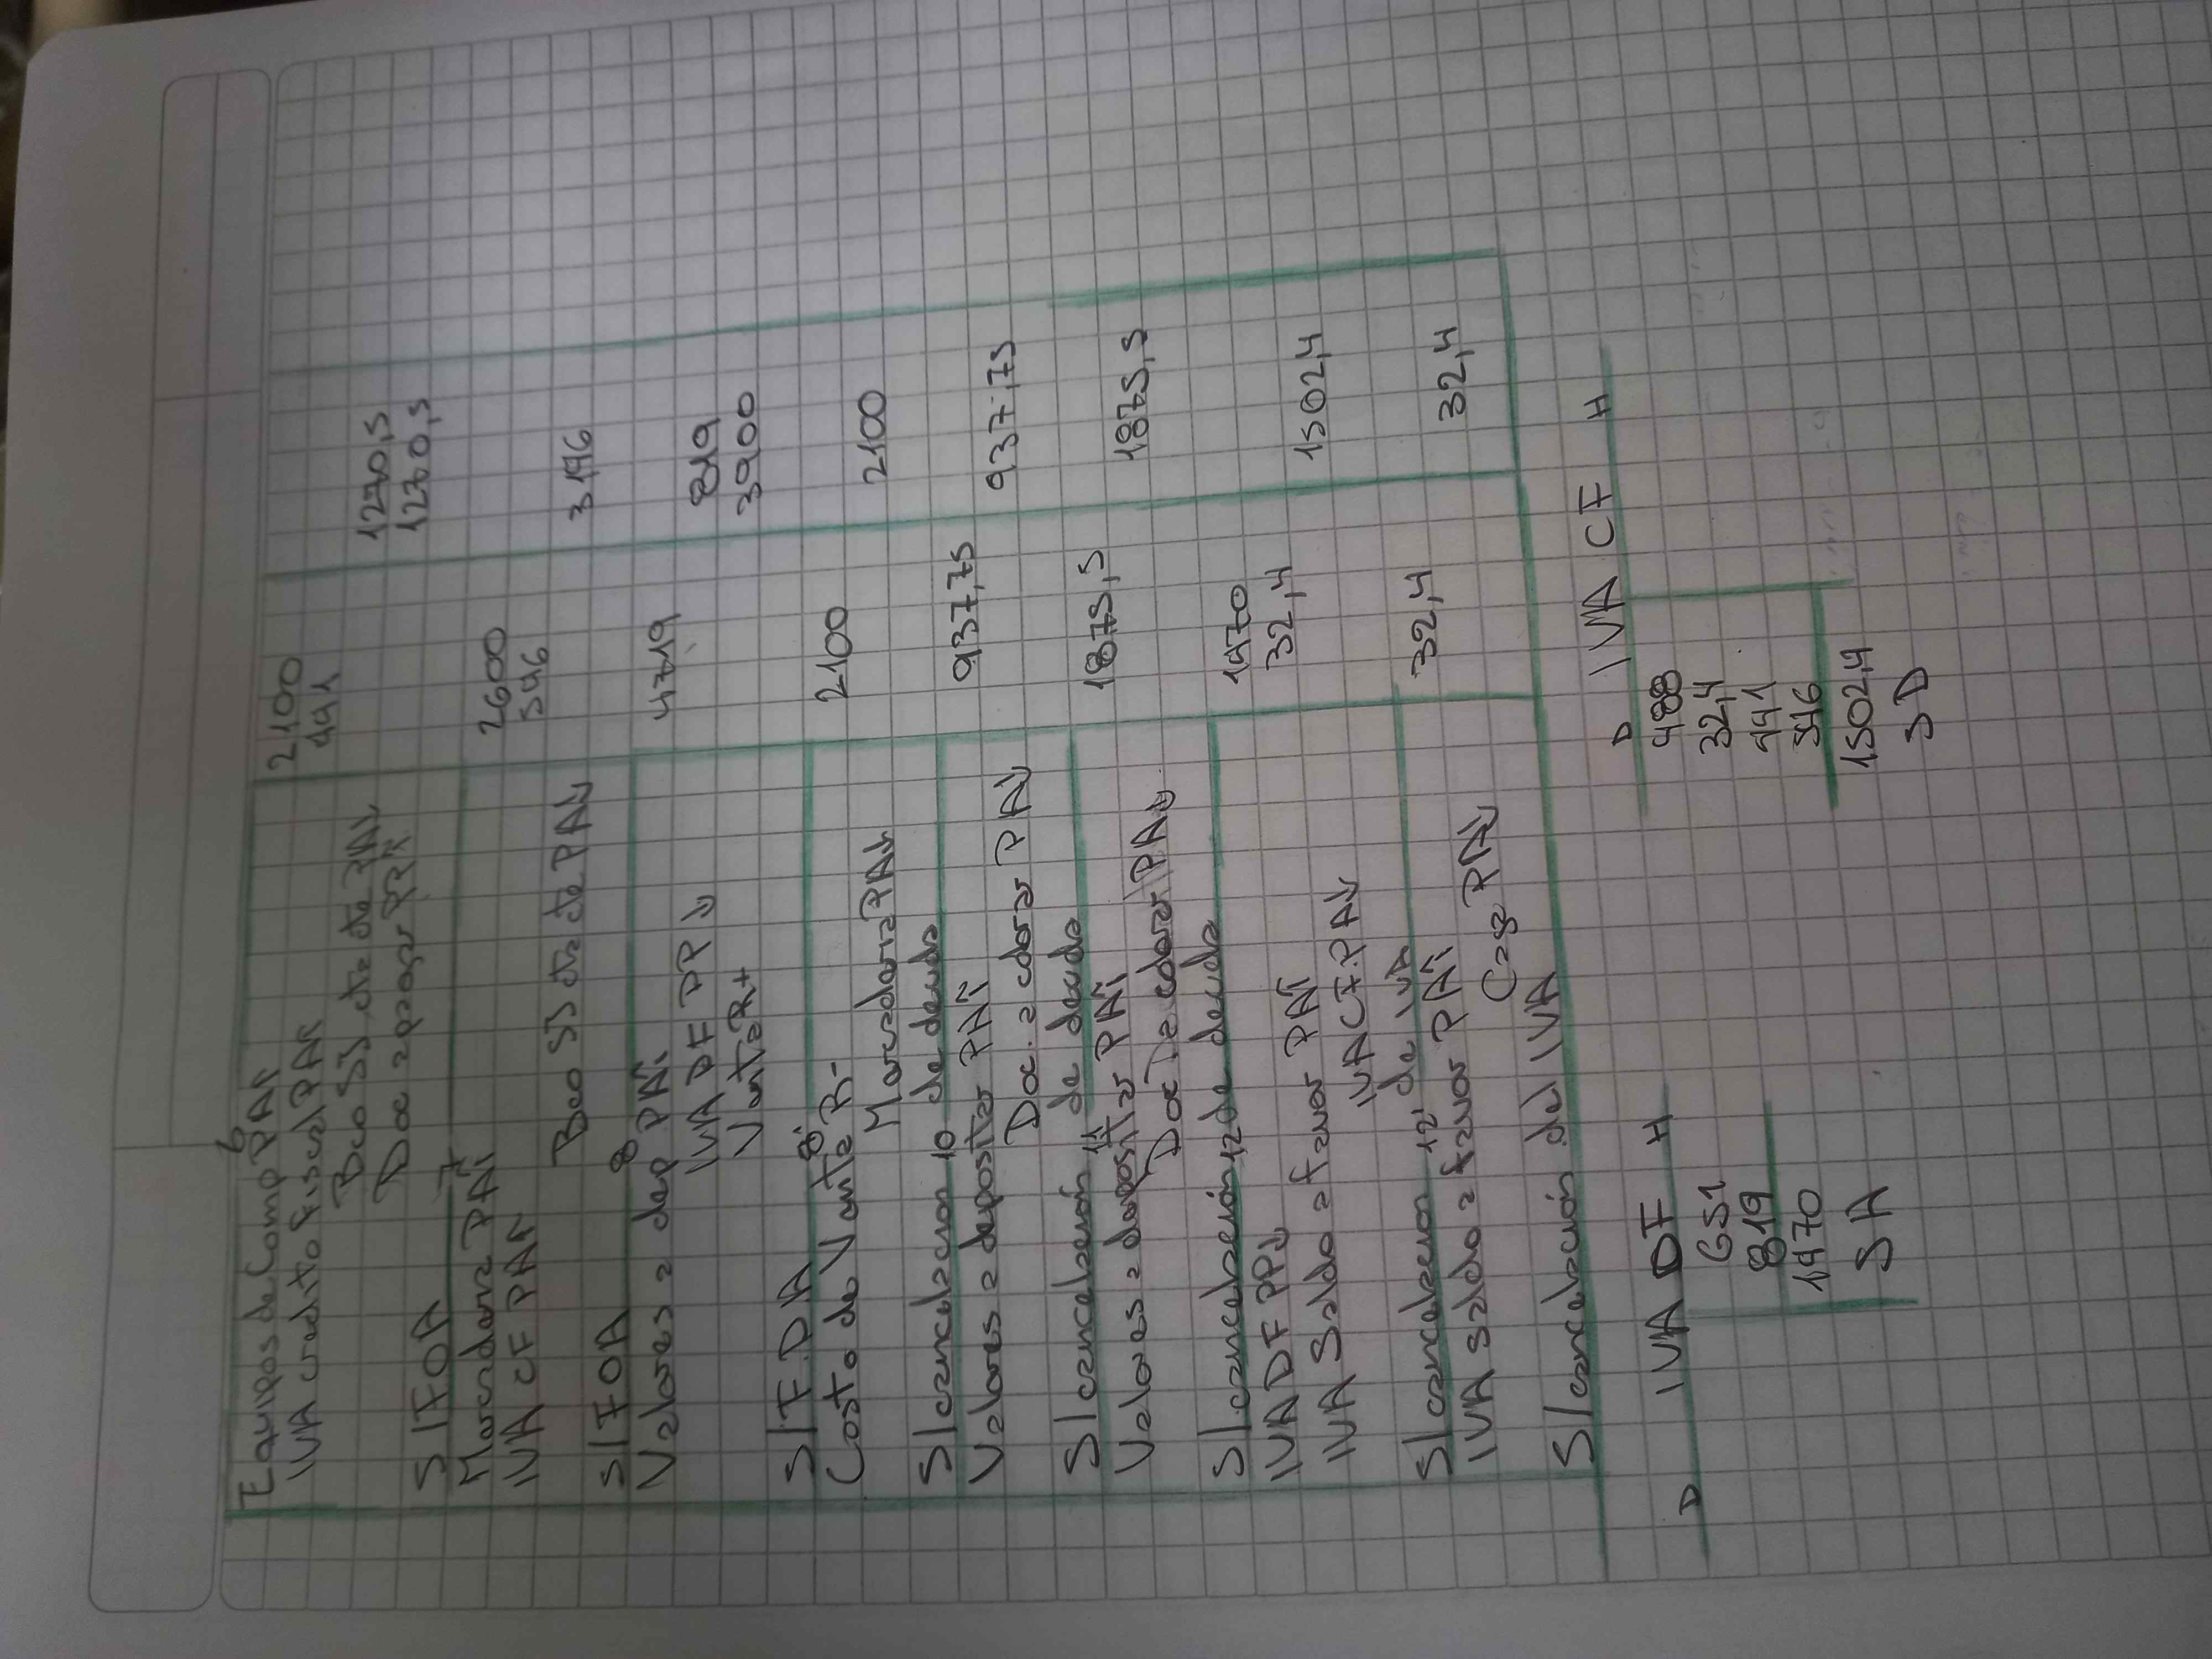 6
Equipos de Comp PA↑ 2100
IVA credito fiscal PA↑ 441
Bco SS cta cte PA↓ 1270,5
Doc a pagar PP↑ 1270,5
S/FOA 7
Mercaderia PA↑ 2600
IVA CF PA↑ 546
Bco SS cta cte PA↓ 3146
S/FOA 8
Valores a dep PA↑ 4719
IVA DF PP↓ 819
Venta R+ 3900
S/F.DA 8'
Costo de Venta R- 2100
Mercaderia PA↓ 2100
S/cancelacion 10 de deuda
Valores a depositar PA↑ 937,75
Doc. a cobrar PA↓ 937,75
S/cancelación 11 de deuda
Valores a depositar PA↑ 1875,5
Doc a cobrar PA↓ 1875,5
S/cancelación 12 de deuda
IVA DF PP↓ 1470
IVA Saldo a favor PA↑ 32,4
IVA CF.PA↓ 1502,4
S/cancelacion 12' de IVA
IVA saldo a favor PA↑ 32,4
Caja PA↓ 32,4
S/cancelación del IVA
D IVA DF H
651
819
1470
SA
D IVA CF H
488
32,4
441
546
1502,4
SD